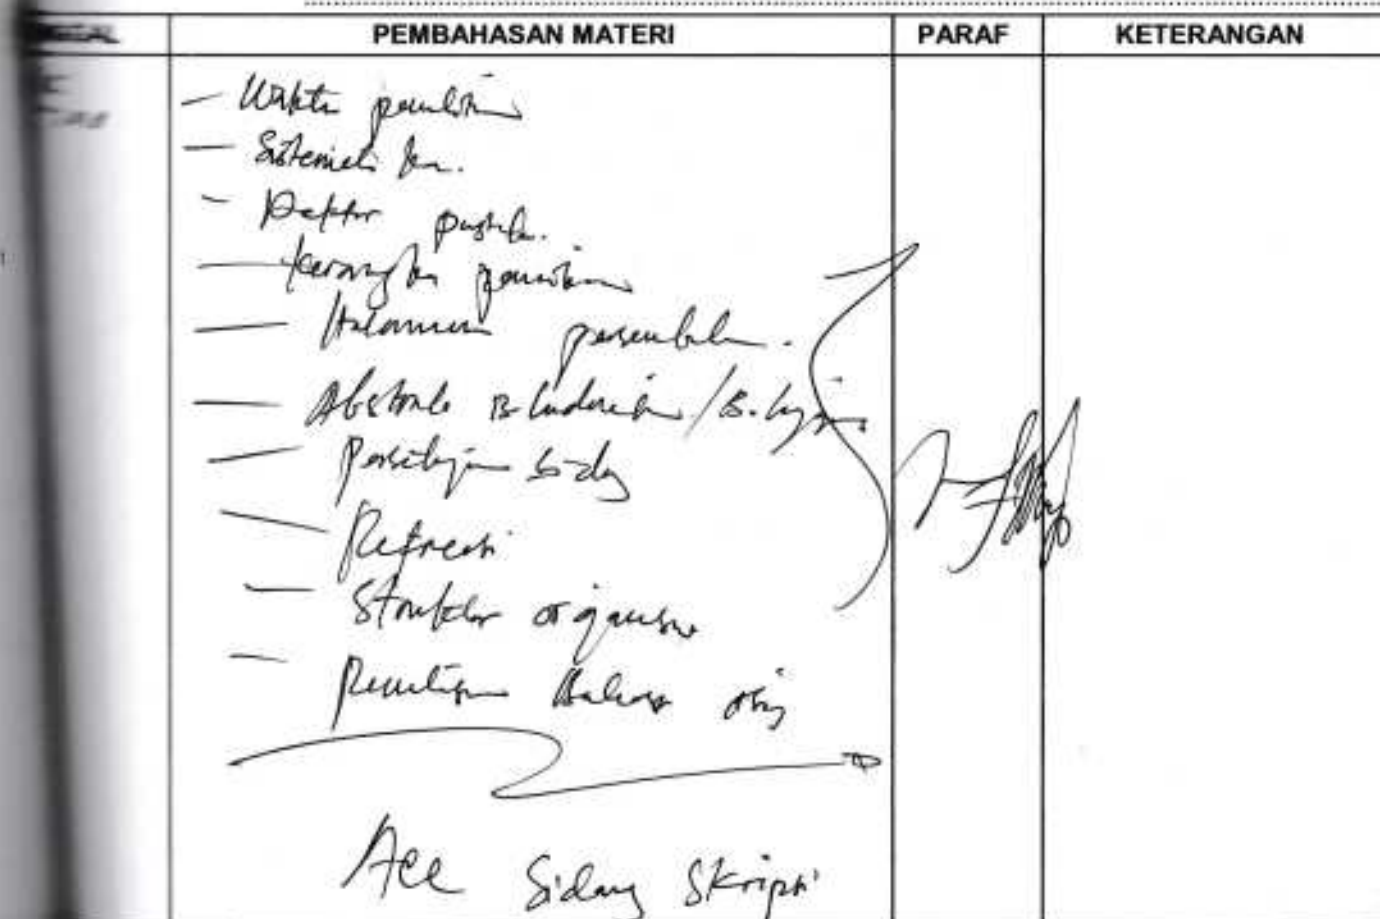 PEMBAHASAN MATERI PARAF KETERANGAN
- Waktu penelitian
- Sistematika.
- Daftar pustaka.
- Kerangka pemikiran
- Halaman persembahan.
- Abstrak B. Indonesia / B. Inggris
- Persetujuan sidang
- Referensi
- Struktur organisasi
- Penulisan Bahasa asing
Acc Sidang Skripsi